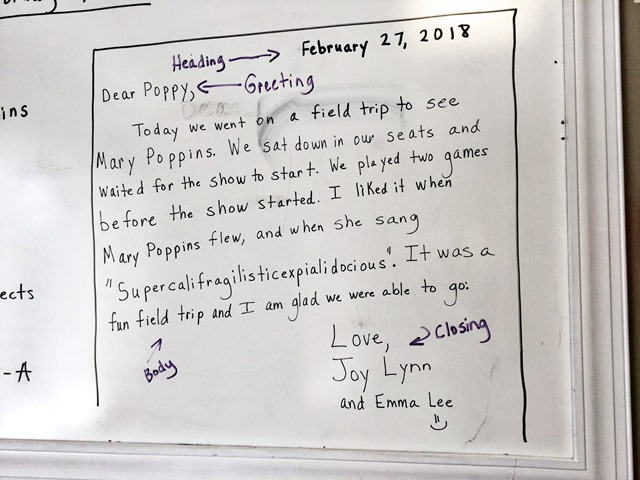 Heading → February 27, 2018
Dear Poppy, ← Greeting
Today we went on a field trip to see
Mary Poppins. We sat down in our seats and
waited for the show to start. We played two games
before the show started. I liked it when
Mary Poppins flew, and when she sang
"Supercalifragilisticexpialidocious". It was a
fun field trip and I am glad we were able to go.
Body
Love, Closing
Joy Lynn
and Emma Lee
ins
ects
-A